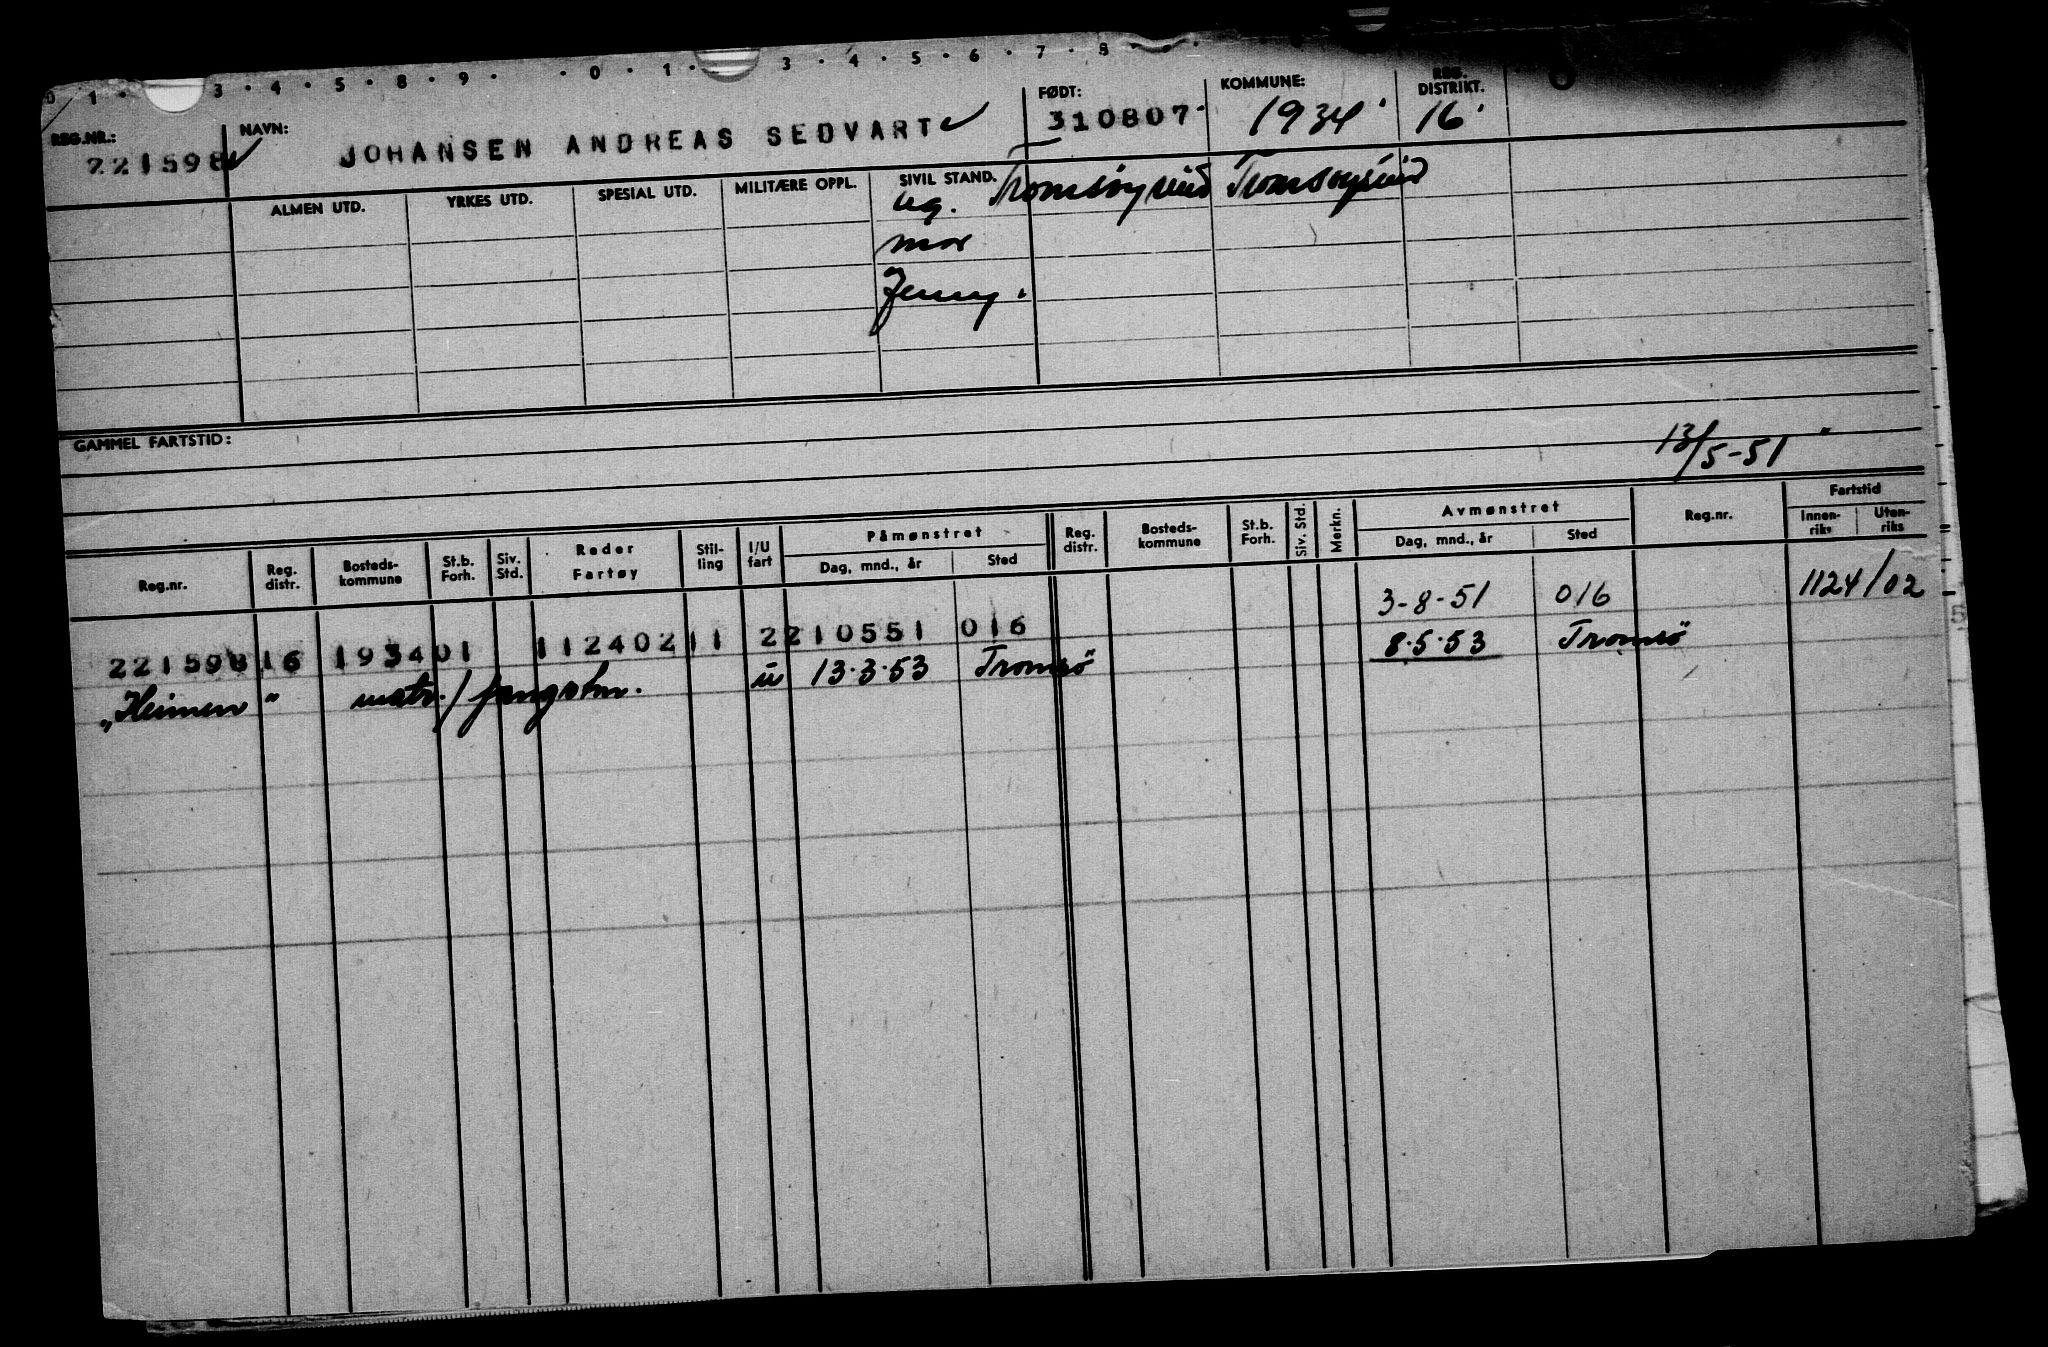 0 1 · 3 · 4 · 5 · 8 · 9 · · 0 · 1 · 3 · 4 · 5 · 6 · 7 · 8 ·
REG.NR.: NAVN: FØDT: KOMMUNE: REG. DISTRIKT.
221598 JOHANSEN ANDREAS SEDVART 310807 1934 16
ALMEN UTD. YRKES UTD. SPESIAL UTD. MILITÆRE OPPL. SIVIL STAND.
ug. Tromsøysund Tromsøysund
mor
Jenny.
GAMMEL FARTSTID:
13/5-51
Reg.nr. Reg. distr. Bosteds-kommune St.b. Forh. Siv. Std. Reder Fartøy Stil-ling I/U fart Påmønstret Dag, mnd., år Sted Reg. distr. Bosteds-kommune St.b. Forh. Siv. Std. Merkn. Avmønstret Dag, mnd., år Sted Reg.nr. Fartstid Innen-riks Uten-riks
221598 16 1934 01 112402 11 2 210551 016 3-8-51 016 1124/02
„Heimen" matr./fangstm. u 13.3.53 Tromsö 8.5.53 Tromsö